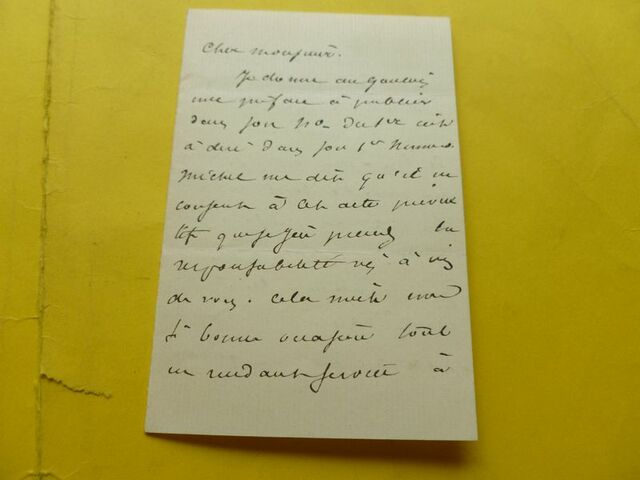 Cher monsieur.
Je donne au Gaulois
une préface à publier
dans son No du 1er
à dire dans son 1er Numéro
Michel me dit qu'il ne
consent à cet acte
que si j'en prends la
responsabilité vis à vis
de vous. Cela
si bonne occasion tout
en rendant service à